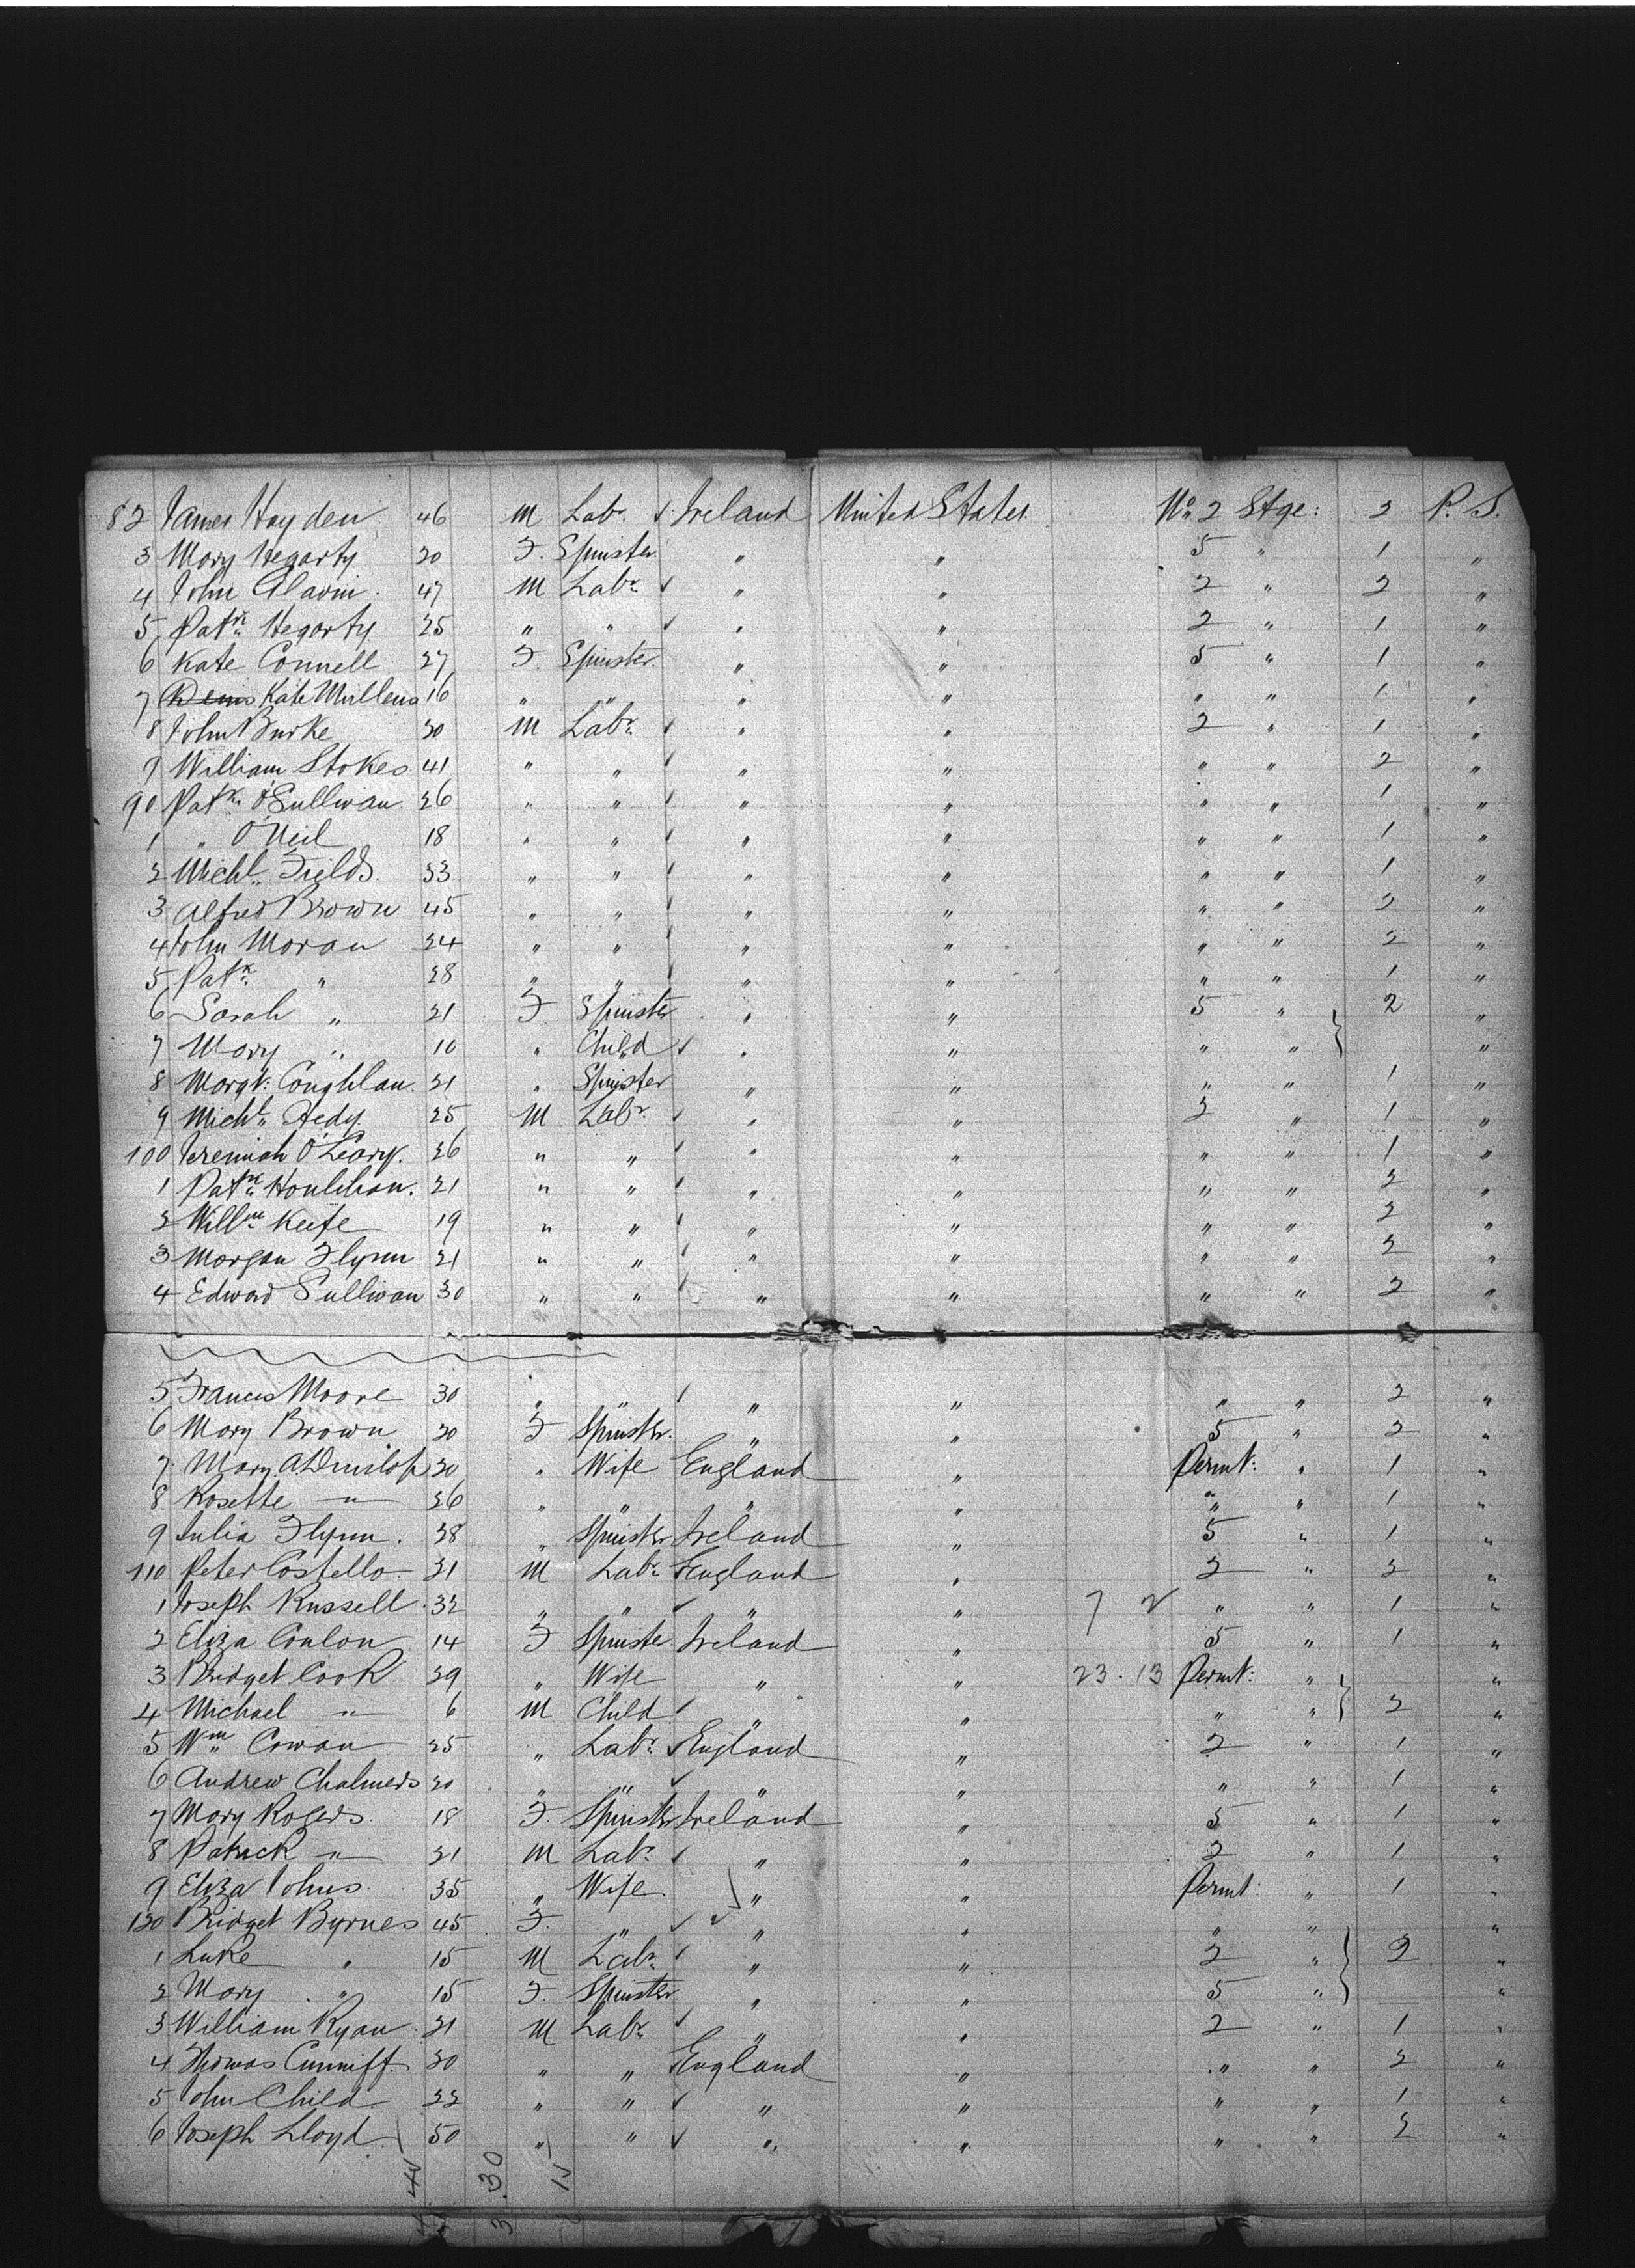 82 James Hayden 46 M Labr. Ireland United States No. 2 Stge: 2 P. S.
3 Mary Hegarty 20 F. Spinster " " 5 " 1 "
4 John Glavin 47 M Labr. " " 2 " 2 "
5 Patk. Hegarty 25 " " " " 2 " 1 "
6 Kate Connell 27 F. Spinster " " 5 " 1 "
7 Denis Kate Mullens 16 " " " " " " 1 "
8 John Burke 20 M Labr. " " 2 " 1 "
9 William Stokes 41 " " " " " " 2 "
90 Patk. O'Sullivan 26 " " " " " " 1 "
1 " O'Neil 18 " " " " " " 1 "
2 Michl. Fields 23 " " " " " " 1 "
3 Alfred Brown 45 " " " " " " 2 "
4 John Moran 24 " " " " " " 2 "
5 Patk. " 28 " " " " " " 1 "
6 Sarah " 21 F Spinster " " 5 " 2 "
7 Mary " 10 " Child " " " " "
8 Margt. Coughlan 21 " Spinster " " " " 1 "
9 Michl. Hedy 25 M Labr. " " 2 " 1 "
100 Jeremiah O'Leary 26 " " " " " " 1 "
1 Patk. Houlihan 21 " " " " " " 2 "
2 Willm. Keefe 19 " " " " " " 2 "
3 Morgan Flynn 21 " " " " " " 2 "
4 Edward Sullivan 30 " " " " " " 2 "
5 Francis Moore 30 " " " " " " 2 "
6 Mary Brown 20 F Spinster. " " 5 " 2 "
7 Mary A. Dunlop 30 " Wife England " Permt: " 1 "
8 Rosette " 26 " " " " " " 1 "
9 Julia Flynn 28 " Spinster Ireland " 5 " 1 "
110 Peter Costello 21 M Labr. England " 2 " 2 "
1 Joseph Russell 32 " " " " 7 2 " " 1 "
2 Eliza Conlon 14 F Spinste Ireland " 5 " 1 "
3 Bridget Cook 29 " Wife " " 23.13 Permt: " "
4 Michael " 6 M Child " " " " 2 "
5 Wm. Cowan 25 " Labr. England " 2 " 1 "
6 Andrew Chalmers 20 " " " " " " 1 "
7 Mary Rogers 18 F. Spinster Ireland " 5 " 1 "
8 Patrick " 21 M Labr. " " 2 " 1 "
9 Eliza Johns 35 " Wife " " Permt: " 1 "
120 Bridget Byrnes 45 F. " " " " " "
1 Luke " 15 M Labr. " " 2 " 2 "
2 Mary " 15 F. Spinster " " 5 " "
3 William Ryan 21 M Labr. " " 2 " 1 "
4 Thomas Cunniff 30 " " England " " " 2 "
5 John Child 22 " " " " " " 1 "
6 Joseph Lloyd 50 " " " " " " 2 "
3.30